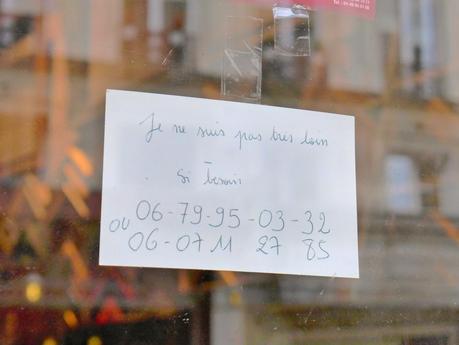 Je ne suis pas très loin
si besoin
06-79-95-03-32
ou 06-07 11 27 85